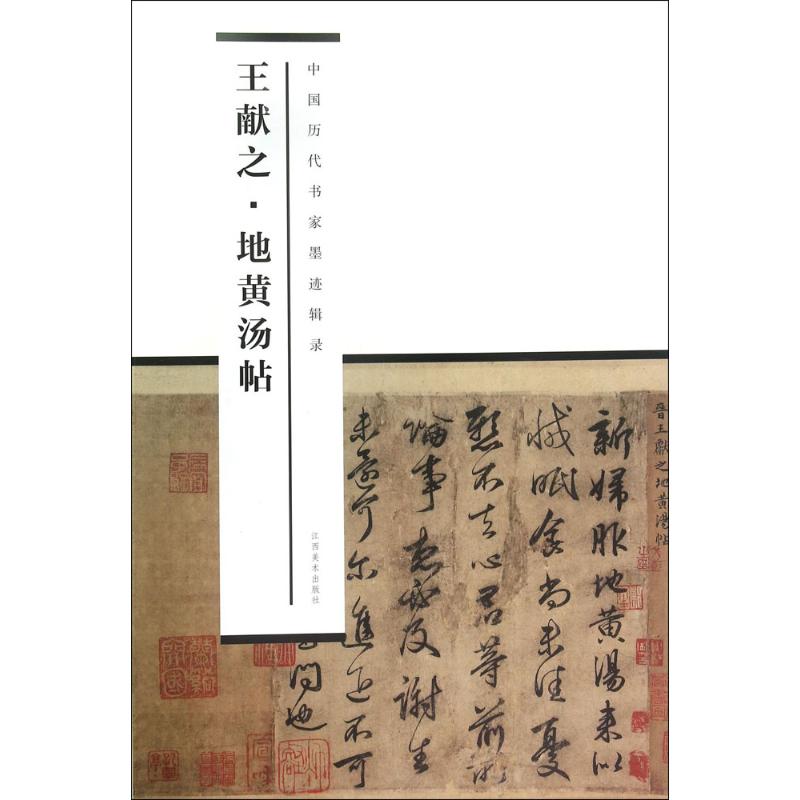 王献之·地黄汤帖
中国历代书家墨迹辑录
江西美术出版社
晋王獻之地黄湯帖
新婦服地黄湯来似
減眠食尚未佳憂
懸不去心君等前所
論事想必及謝生
未還可尔進退不可
問也